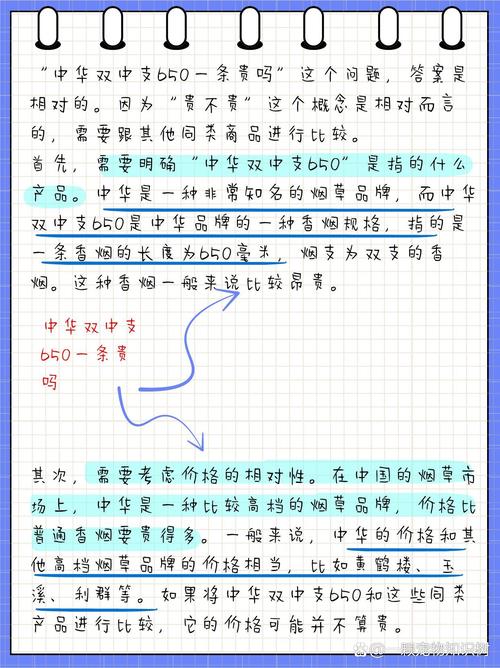 “中华双中支650一条贵吗”这个问题，答案是
相对的。因为“贵不贵”这个概念是相对而言
的，需要跟其他同类商品进行比较。
首先，需要明确“中华双中支650”是指的什么
产品。中华是一种非常知名的烟草品牌，而中华
双中支650是中华品牌的一种香烟规格，指的是
一条香烟的长度为650毫米，烟支为双支的香
烟。这种香烟一般来说比较昂贵。
中华双中支
650一条贵
吗
其次，需要考虑价格的相对性。在中国的烟草市
场上，中华是一种比较高档的烟草品牌，价格比
普通香烟要贵得多。一般来说，中华的价格和其
他高档烟草品牌的价格相当，比如黄鹤楼、玉
溪、利群等。如果将中华双中支650和这些同类
产品进行比较，它的价格可能并不算贵。
@一颗宠物知识树